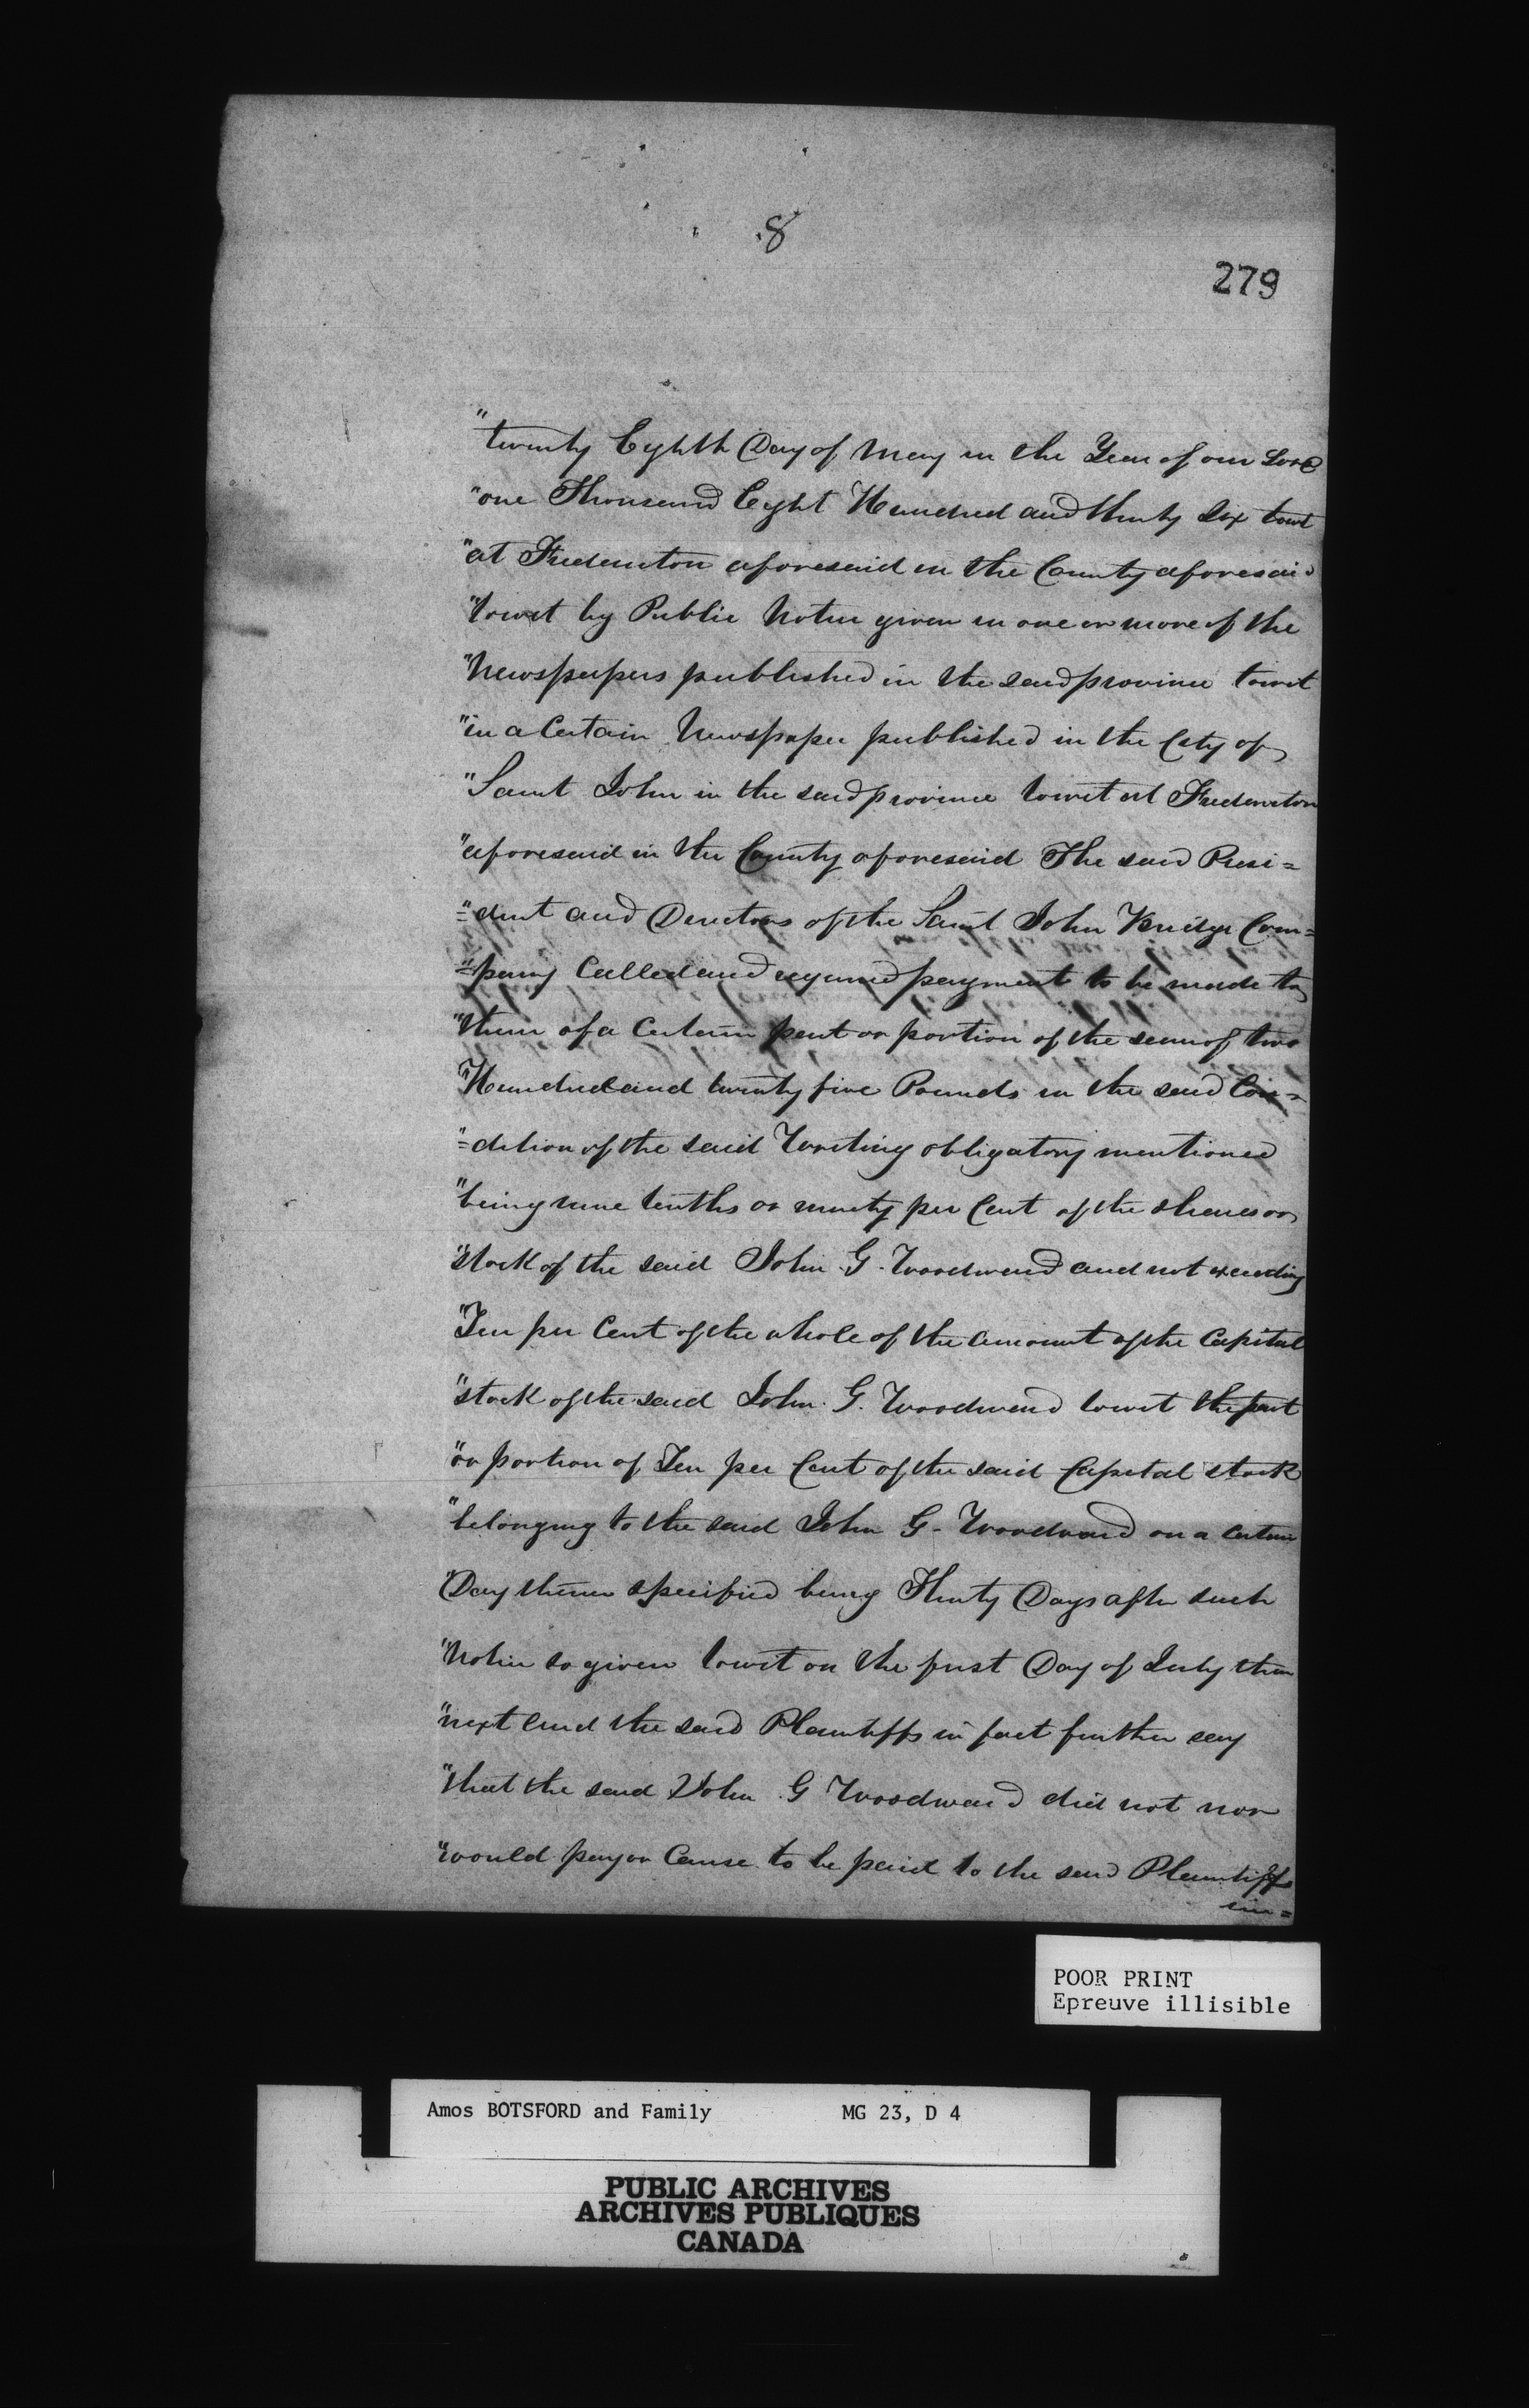 8
279
"twenty Eighth Day of May in the Year of our Lord
"one Thousand Eight Hundred and thirty Six towit
"at Fredericton aforesaid in the County aforesaid
"towit by Public Notice given in one or more of the
"Newspapers published in the said province towit
"in a Certain Newspaper published in the City of
"Saint John in the said province towit at Fredericton
"aforesaid in the County aforesaid The said Presi=
"=dent and Directors of the Saint John Bridge Com=
"=pany Called and required payment to be made to
"them of a Certain part or portion of the sum of two
"Hundred and twenty five Pounds in the said Con=
"=dition of the said Writing obligatory mentioned
"being nine tenths or ninety per Cent of the shares or
"stock of the said John G. Woodward and not exceeding
"Ten per Cent of the whole of the amount of the Capital
"stock of the said John G. Woodward towit the part
"or portion of Ten per Cent of the said Capital stock
"belonging to the said John G. Woodward on a certain
"Day therein specified being Thirty Days after such
"Notice so given towit on the first Day of July then
"next And the said Plaintiffs in fact further say
"that the said John G Woodward did not nor
"would pay or Cause to be paid to the said Plaintiffs
POOR PRINT
Epreuve illisible
Amos BOTSFORD and Family MG 23, D 4
PUBLIC ARCHIVES
ARCHIVES PUBLIQUES
CANADA